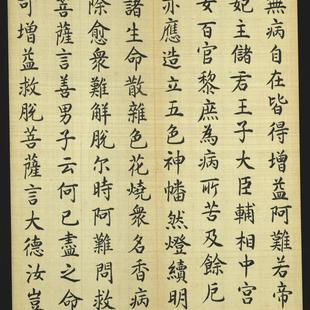 無病自在皆得增益阿難若帝
妃主儲君王子大臣輔相中宮
女百官黎庶為病所苦及餘厄
亦應造立五色神幡然燈續明
諸生命散雜色花燒眾名香病
除愈眾難解脫尔時阿難問救
菩薩言善男子云何已盡之命
可增益救脫菩薩言大德汝豈